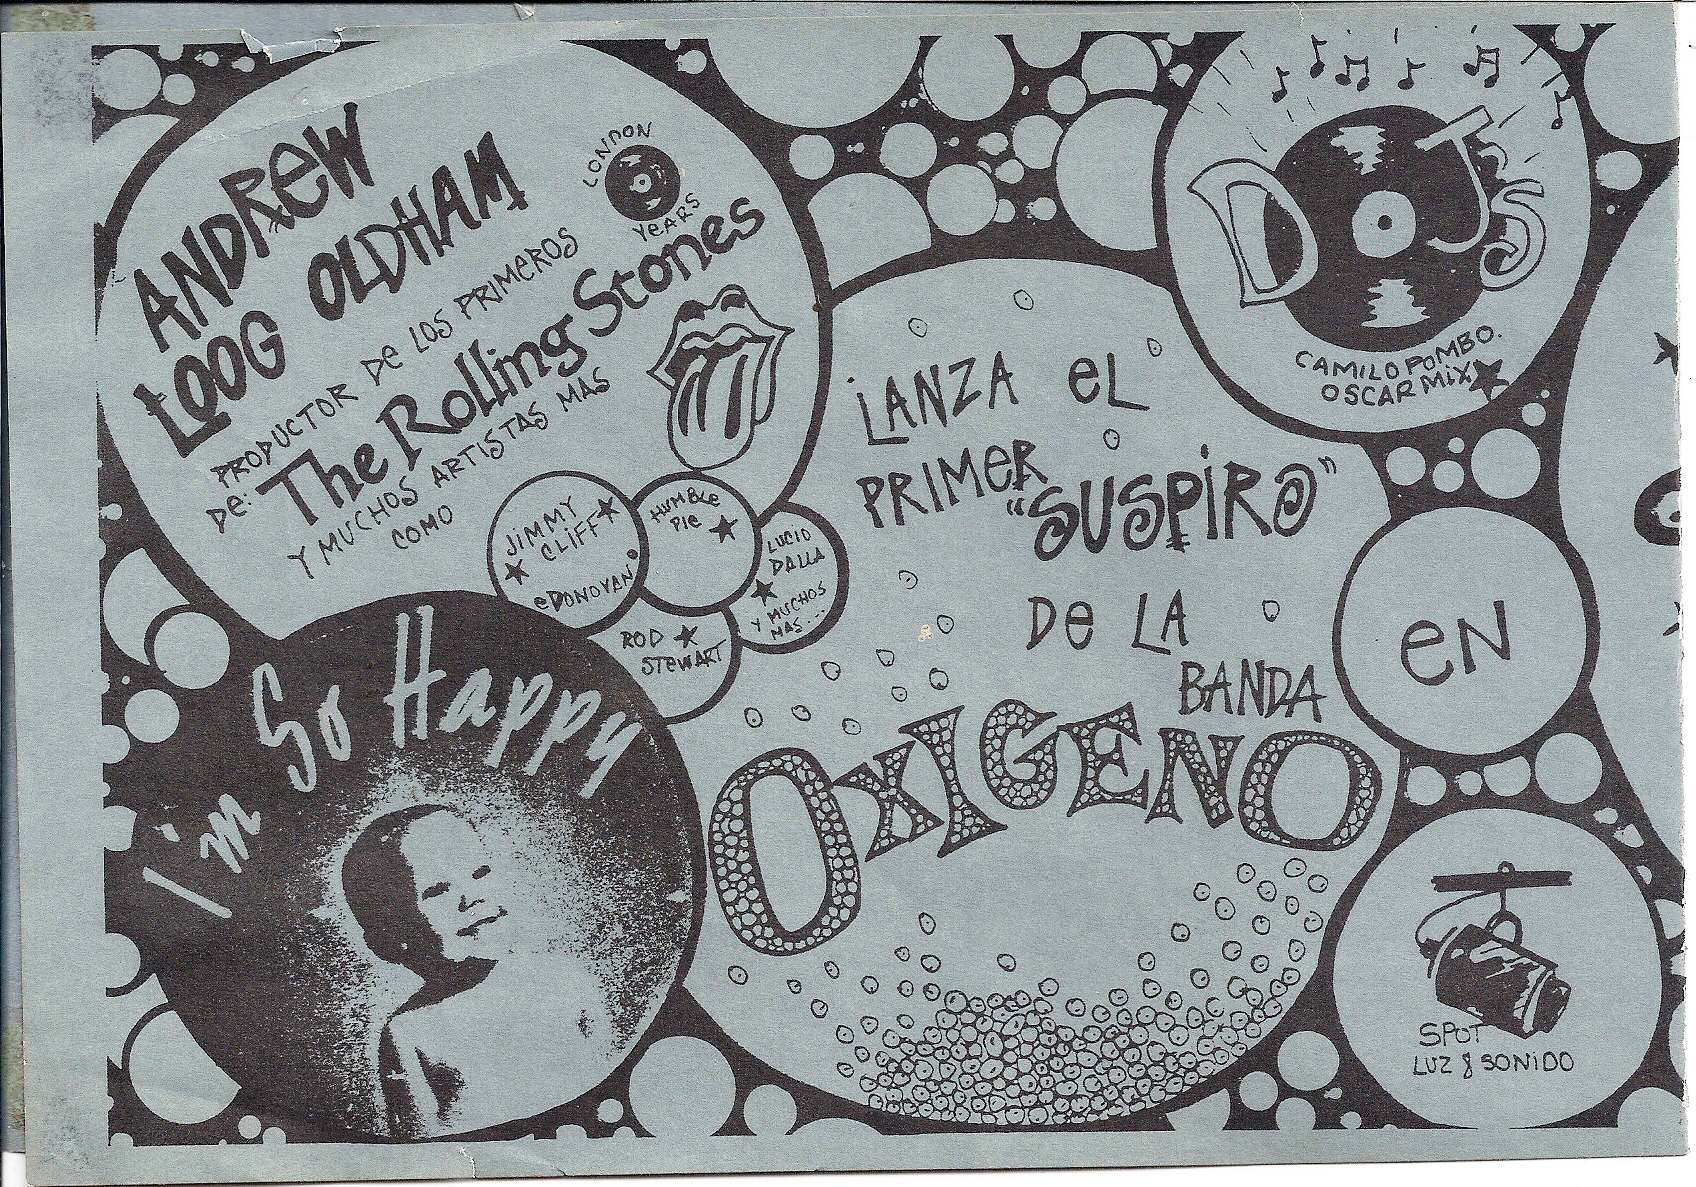 ANDREW
LOOG OLDHAM
LONDON
YEARS
PRODUCTOR DE LOS PRIMEROS
DE: The Rolling Stones
Y MUCHOS ARTISTAS MAS
COMO
JIMMY
CLIFF
DONOVAN
HUMBLE
PIE
LUCIO
DALLA
Y MUCHOS
MAS...
ROD
STEWART
I'm So Happy
LANZA EL
PRIMER
"SUSPIRO"
DE LA
BANDA
OXIGENO
DJ'S
CAMILO POMBO.
OSCAR MIX
EN
SPOT
LUZ & SONIDO